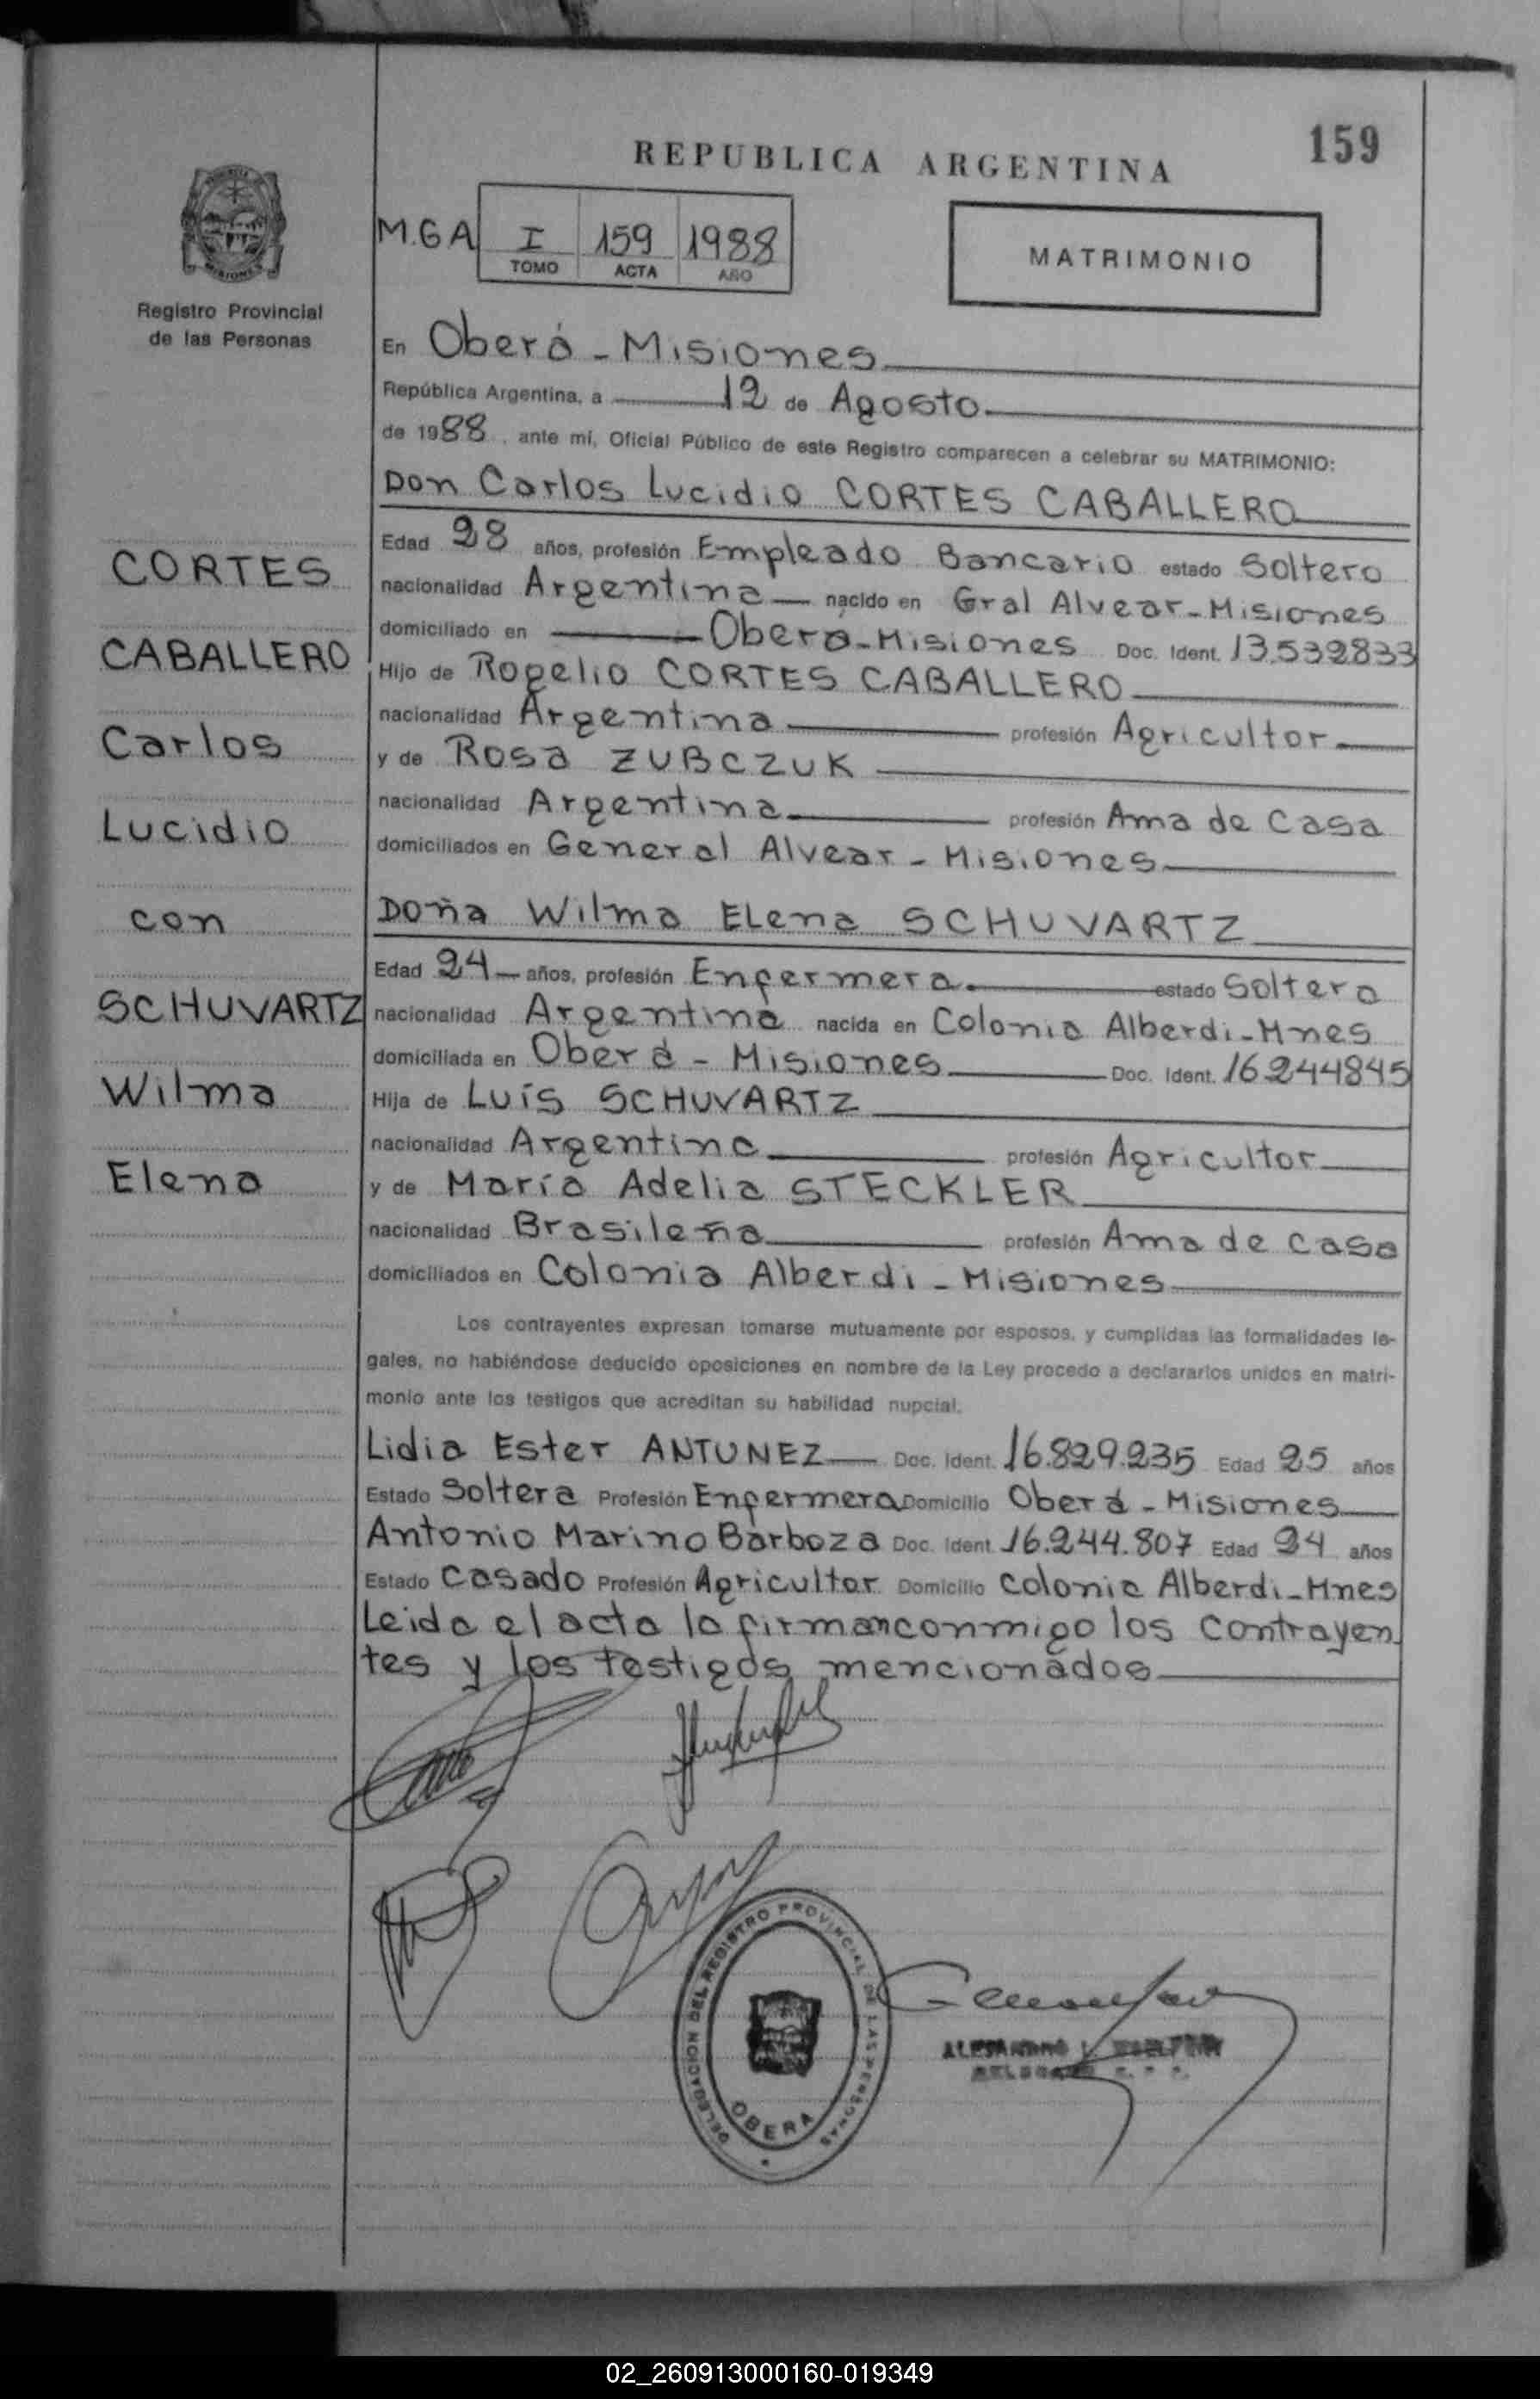 REPUBLICA ARGENTINA
159
M.G.A
I 159 1988
TOMO ACTA AÑO
MATRIMONIO
Registro Provincial
de las Personas
En Oberá - Misiones
República Argentina, a 12 de Agosto
de 1988, ante mí, Oficial Público de este Registro comparecen a celebrar su MATRIMONIO:
Don Carlos Lucidio CORTES CABALLERO
Edad 28 años, profesión Empleado Bancario estado Soltero
nacionalidad Argentina nacido en Gral Alvear - Misiones
domiciliado en Oberá - Misiones Doc. Ident. 13.532833
Hijo de Rogelio CORTES CABALLERO
nacionalidad Argentina profesión Agricultor
y de Rosa ZUBCZUK
nacionalidad Argentina profesión Ama de Casa
domiciliados en General Alvear - Misiones
Doña Wilma Elena SCHUVARTZ
Edad 24 años, profesión Enfermera estado Soltera
nacionalidad Argentina nacida en Colonia Alberdi - Mnes
domiciliada en Oberá - Misiones Doc. Ident. 16244845
Hija de Luís SCHUVARTZ
nacionalidad Argentina profesión Agricultor
y de María Adelia STECKLER
nacionalidad Brasileña profesión Ama de Casa
domiciliados en Colonia Alberdi - Misiones
Los contrayentes expresan tomarse mutuamente por esposos, y cumplidas las formalidades le-
gales, no habiéndose deducido oposiciones en nombre de la Ley procedo a declararlos unidos en matri-
monio ante los testigos que acreditan su habilidad nupcial.
Lidia Ester ANTUNEZ Doc. Ident. 16.829.235 Edad 25 años
Estado Soltera Profesión Enfermera Domicilio Oberá - Misiones
Antonio Marino Barboza Doc. Ident. 16.244.807 Edad 24 años
Estado Casado Profesión Agricultor Domicilio Colonia Alberdi - Mnes
Leida el acta la firman conmigo los contrayen
tes y los testigos mencionados
CORTES
CABALLERO
Carlos
Lucidio
con
SCHUVARTZ
Wilma
Elena
DELEGACION DEL REGISTRO PROVINCIAL DE LAS PERSONAS
OBERA
02_260913000160-019349